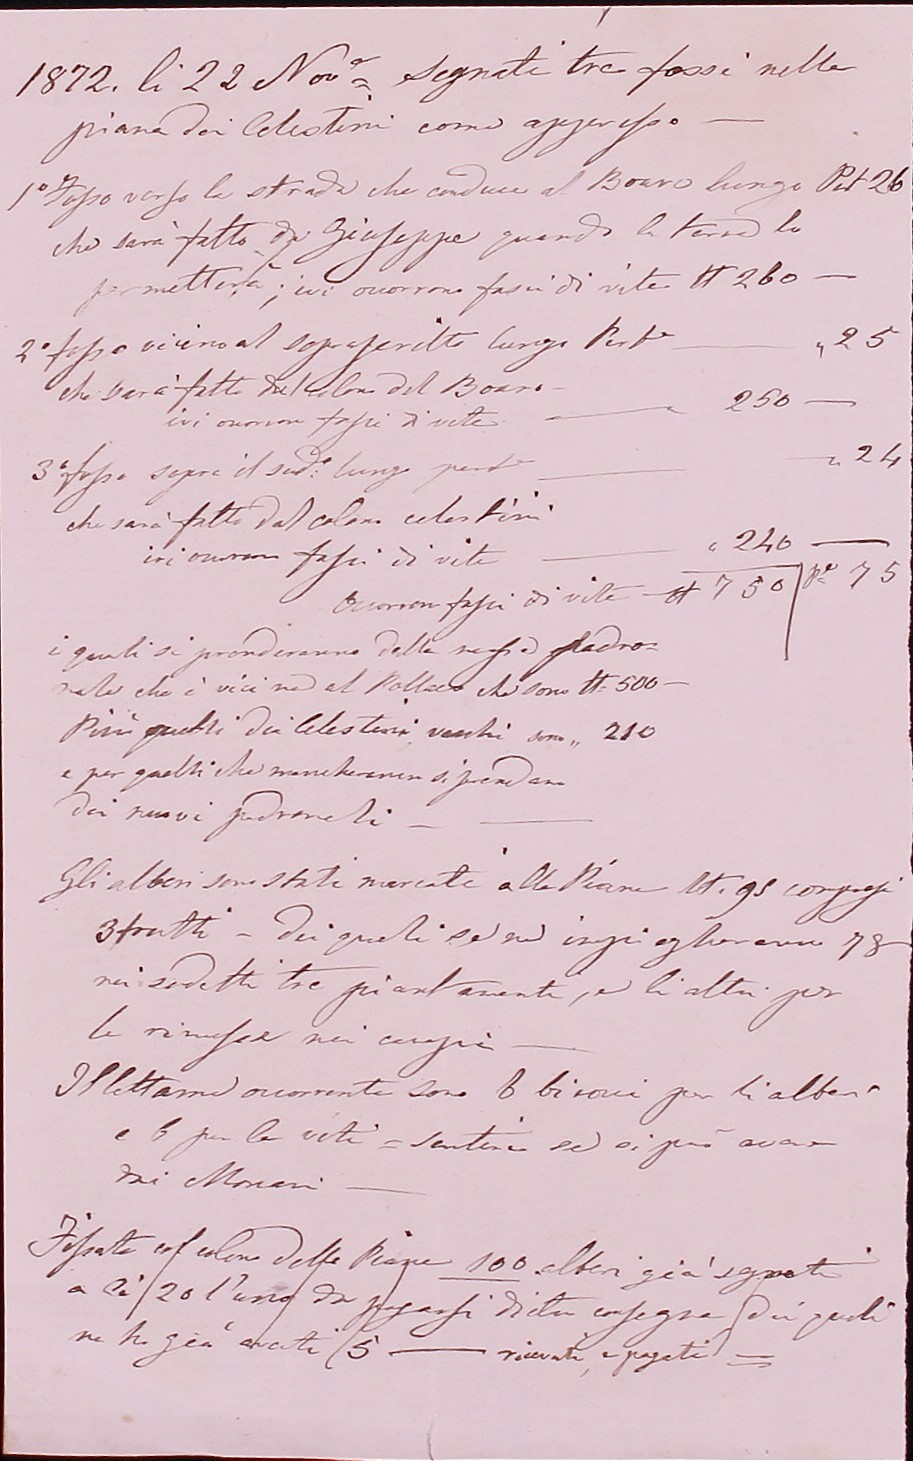 1872. li 22 Nov.e segnati tre fossi nella
piana dei Celestini come appresso —
1° Fosso verso la strada che conduce al Boaro lungo Pert 26
che sarà fatto da Giuseppe quando la terra lo
permetterà; ivi occorrono fasci di vite N 260 —
2° fosso vicino al soprascritto lungo Pert.e — „ 25
che sarà fatto dal colono del Boaro —
ivi occorron fasci di vite — „ 250 —
3° fosso sopra il sud.o lungo pert.e — „ 24
che sarà fatto dal colono celestini
ivi occorron fasci di vite — „ 240 —
Occorron fasci di vite — N 750 P.e 75
i quali si prenderanno dalla padro=
nale che è vicina al che sono N. 500 —
Più quelli dei Celestini vecchi sono „ 210
e per quelli che mancheranno si prendano
dei nuovi padronali — —
Gli alberi sono stati marcati alla Piana N. 98 compresi
3 frutti — dei quali se ne impiegheranno 78
nei sudetti tre piantamenti, e li altri per
le rimesse nei campi —
Il lettame occorrente sono 6 birocci per li alberi
e 6 per le viti = sentire se si può avere
dai Monari —
Fissato col colono delle Piane 100 alberi già segnati
a 20 l'uno da pagarsi dietro consegna dei quali
ne ho già avuti 5 — ricevuti, e pagati =